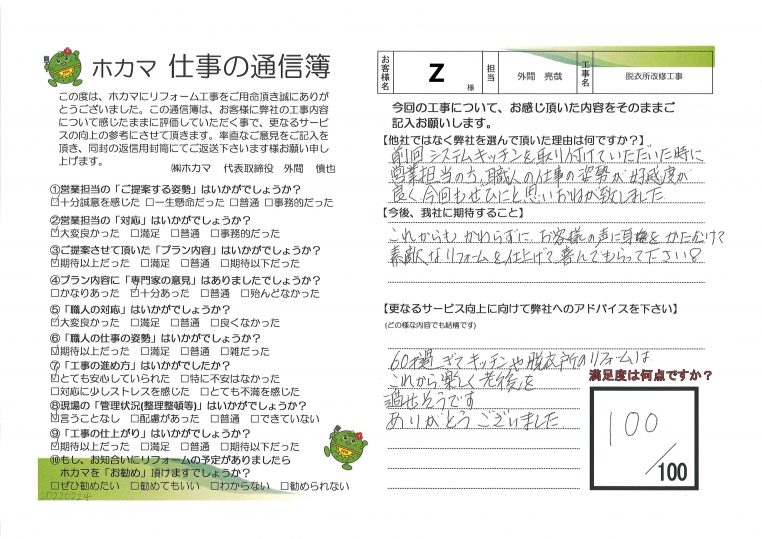 ホカマ 仕事の通信簿
この度は、ホカマにリフォーム工事をご用命頂き誠にありが
とうございました。この通信簿は、お客様に弊社の工事内容
について感じたままに評価していただく事で、更なるサービ
スの向上の参考にさせて頂きます。率直なご意見をご記入を
頂き、同封の返信用封筒にてご返送下さいます様お願い申し
上げます。
㈱ホカマ 代表取締役 外間 慎也
①営業担当の「ご提案する姿勢」はいかがでしょうか?
☑十分誠意を感じた □一生懸命だった □普通 □事務的だった
②営業担当の「対応」はいかがでしょうか?
☑大変良かった □満足 □普通 □事務的だった
③ご提案させて頂いた「プラン内容」はいかがでしょうか?
☑期待以上だった □満足 □普通 □期待以下だった
④プラン内容に「専門家の意見」はありましたでしょうか?
□かなりあった ☑十分あった □普通 □殆んどなかった
⑤「職人の対応」はいかがでしょうか?
☑大変良かった □満足 □普通 □良くなかった
⑥「職人の仕事の姿勢」はいかがでしょうか?
☑期待以上だった □満足 □普通 □雑だった
⑦「工事の進め方」はいかがでしたか?
☑とても安心していられた □特に不安はなかった
□対応に少しストレスを感じた □とても不満を感じた
⑧現場の「管理状況(整理整頓等)」はいかがでしょうか?
☑言うことなし □配慮があった □普通 □できていない
⑨「工事の仕上がり」はいかがでしょうか?
☑期待以上だった □満足 □普通 □期待以下だった
⑩もし、お知合いにリフォームの予定がありましたら
ホカマを「お勧め」頂けますでしょうか?
□ぜひ勧めたい □勧めてもいい □わからない □勧められない
20220224
お客様名 Z 様 担当 外間 亮哉 工事名 脱衣所改修工事
今回の工事について、お感じ頂いた内容をそのままご
記入お願いします。
【他社ではなく弊社を選んで頂いた理由は何ですか?】
前回システムキッチンを取り付けていただいた時に
営業担当の方、職人の仕事の姿勢が好感度が
良く今回もぜひにと思いおねが致しました
【今後、我社に期待すること】
これからもかわらずに、お客様の声に耳をかたむけて
素敵なリフォームを仕上げて喜んでもらって下さい
【更なるサービス向上に向けて弊社へのアドバイスを下さい】
(どの様な内容でも結構です)
60才過ぎてキッチンや脱衣所のリフォームは
これから楽しく老後を
過せそうです
ありがとうございました
満足度は何点ですか?
100
/100